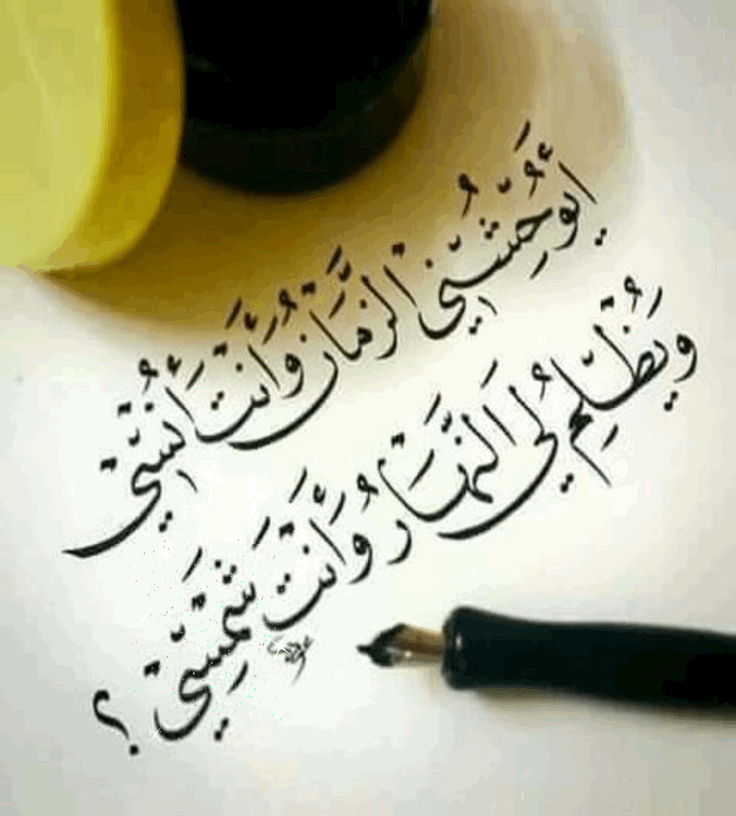 أيُوحِشُنِي الزَّمَانُ وَأَنْتَ أُنْسِي
وَيُظْلِمُ لِي النَّهَارُ وَأَنْتَ شَمْسِي؟